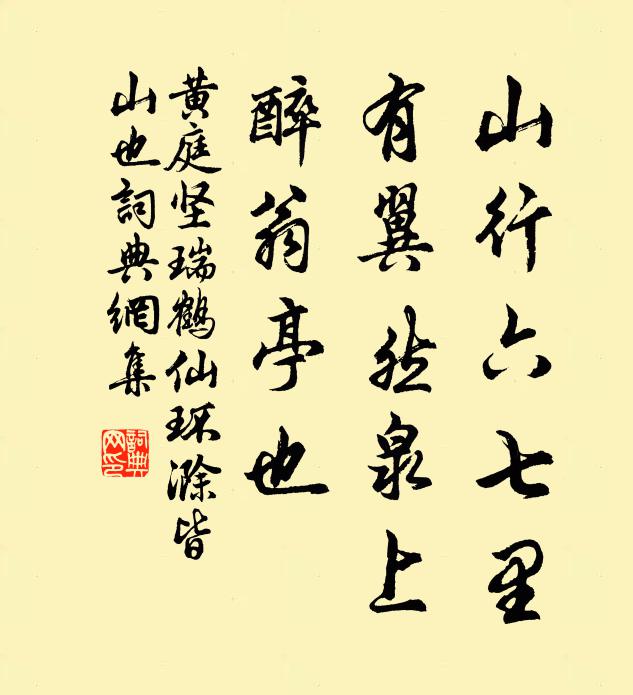 山行六七里
有翼然泉上
醉翁亭也
黄庭坚瑞鹤仙环滁皆
山也詞典網集
詞典
网印